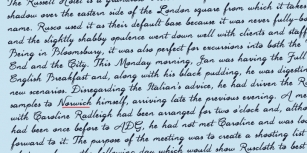 The Russell Hotel is a gra
shadow over the eastern side of the London square from which it takes
name. Rusco used it as their default base because it was never fully-boo
and the slightly shabby opulence went down well with clients and staff
Being in Bloomsbury, it was also perfect for excursions into both the
End and the City. This Monday morning, Jan was having the Full
English Breakfast and, along with his black pudding, he was digestin
new scenarios. Disregarding the Italian's advice, he had driven the R
samples to Norwich himself, arriving late the previous evening. A me
with Caroline Radleigh had been arranged for two o'clock and, altho
had been once before to ADG, he had not met Caroline and was loo
forward to it. The purpose of the meeting was to create a shooting list
the following day which would show Ruscloth to best